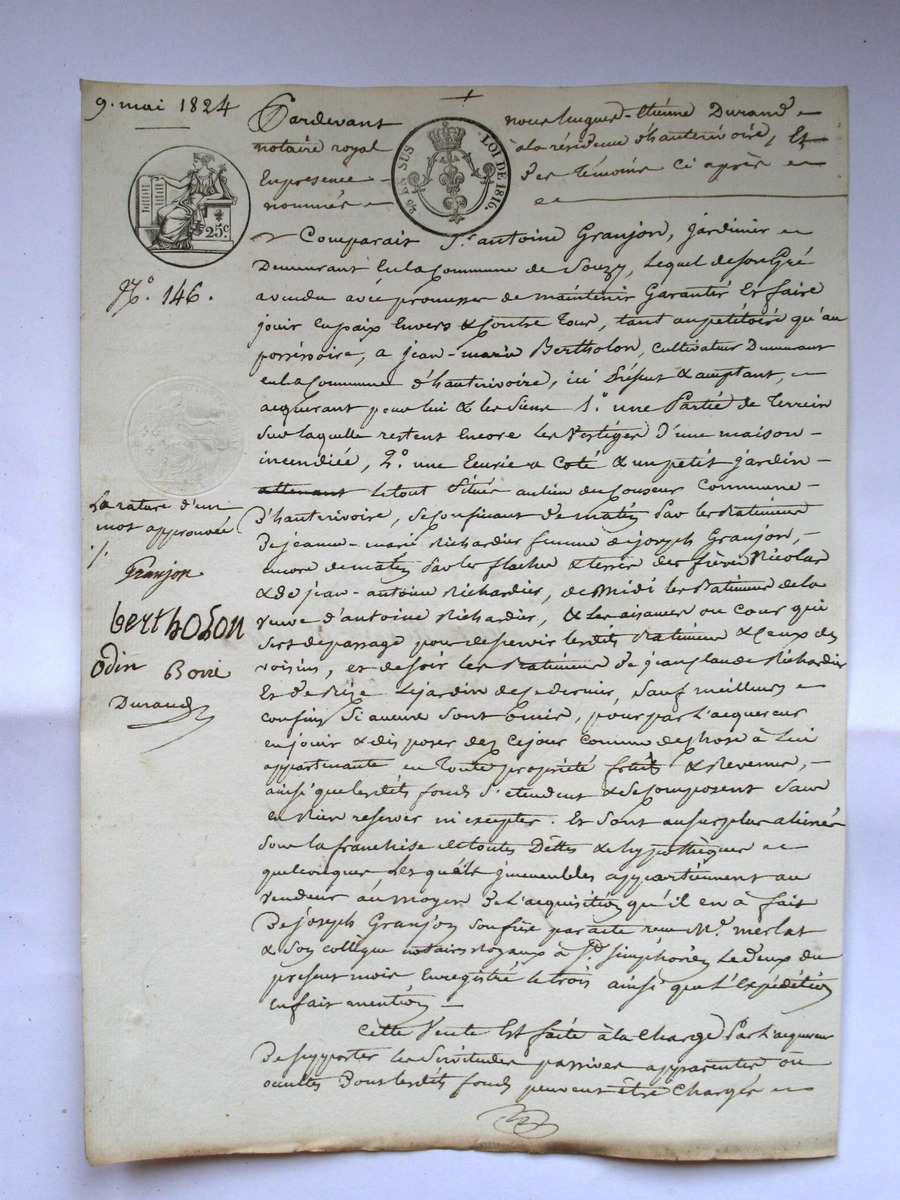 9. mai 1824
Pardevant nous hugues-étienne Durand
notaire royal à la résidence d'hauterivoire, Et
En presence des témoins ci après
nommés
25 EN SUS LOI DE 1816.
25c
N.o 146.
Comparait Sr antoine Granjon, jardinier
Demeurant en la Commune de Souzy, lequel de son Gré
a vendu avec promesse de maintenir Garantir Et faire
jouir en paix Envers & Contre Tous, tant au petitoire qu'au
possessoire, a jean-marie Bertholon, cultivateur Demeurant
en la Commune d'hauterivoire, ici Présent & acceptant,
acquerant pour lui & les Siens 1.o une Partie de Terrein
Sur laquelle restent Encore les Vestiges D'une maison
incendiée, 2.o une Ecurie a Coté & un petit jardin
attenant le tout Situés au lieu du Commune
D'hauterivoire, se Confinant de matin Par les Batimens
De jeanne-marie Richardier femme de joseph Granjon,
encore de matin Par les & terre des frères Nicolas
& de jean-antoine Richardier, de Midi les Batimens de la
veuve d'antoine Richardier, & les aisances ou cour qui
sert de passage pour desservir lesdits Batimens & Ceux des
voisins, et de soir les Batimens de jean claude Richardier
Et de Bize le jardin de ce dernier, sauf meilleurs
confins Si aucuns sont omis, pour par l'acquereur
en jouir & disposer dez ce jour comme de chose à Lui
appartenante en Toute propriété fruits & Revenus,
ainsi que lesdits fonds s'etendent & se Composent sans
en Rien reserver ni excepter. Et sont au surplus aliénés
sous la franchise de toutes Dettes & hypothèques
quelconques Les quels immeubles appartiennent au
Vendeur au moyen De L'acquisition qu'il en à fait
De joseph Granjon son frère par acte reçu Me merlat
& son collègue notaires Royaux à St simphorien Le deux du
present mois Enregistré le trois ainsi que l'Expédition
en fait mention
Cette Vente Est faite à la charge Par l'acquereur
De supporter les Servitudes passives apparentes ou
occultes dont lesdits fonds peuvent être Chargés
La rature d'un
mot approuvée
Granjon
bertholon
Odin Borie
Durand